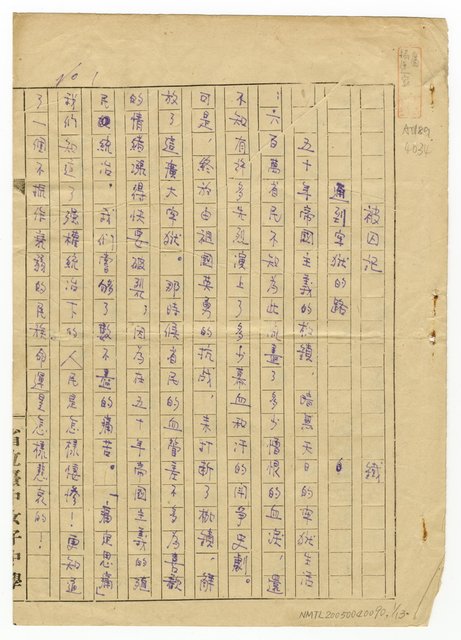 被囚記
鐵
通到牢獄的路
五十年帝國主義的枷鎖、暗無天日的牢獄生活
；六百萬省民不知為此流盡了多少憎恨的血淚，還
不知有許多先烈演上了多少幕血和汗的鬥爭史劇。
可是、終於由祖國英勇的抗战、来打断了枷鎖、解
放了這廣大牢獄。那時候省民的血管差不多為喜歡
的情緒漲得快要破裂了！因為在五十年帝國主義的殖
民統治。我們嘗够了数不盡的痛苦。「痛定思痛」
我們知道了強權統治下的人民是怎樣悽惨！更知道
了一個不振作衰弱的民族的運命是怎樣悲哀的！
No 1
A7189
4034
NMTL20050040090. 1/13.